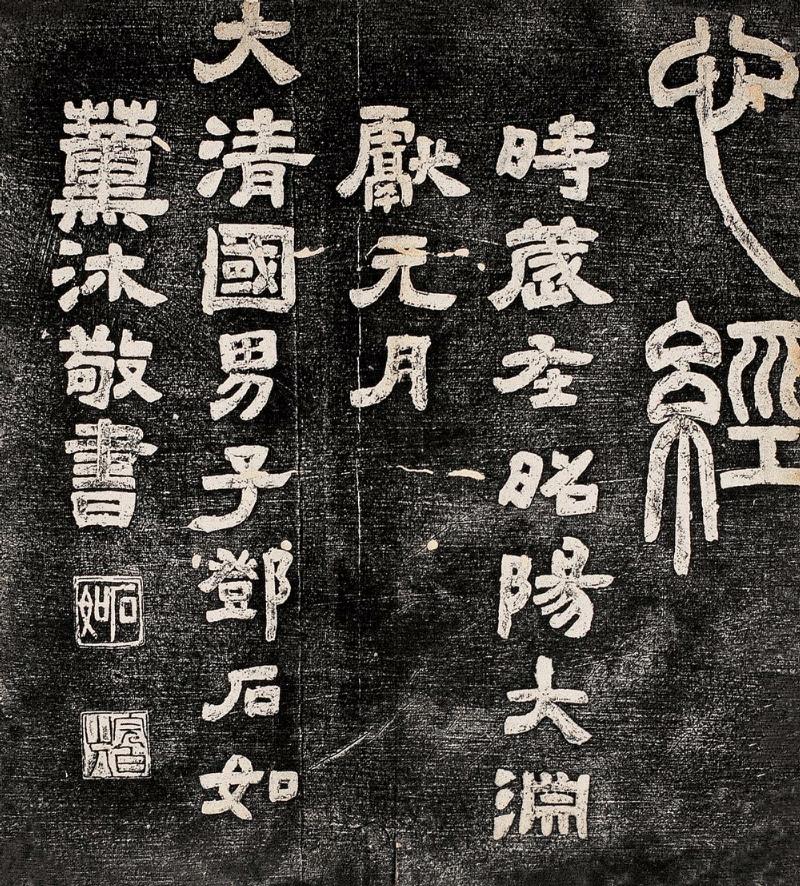 心經
時歲在昭陽大淵
獻元月
大清國男子鄧石如
薰沐敬書
石如
完白山人